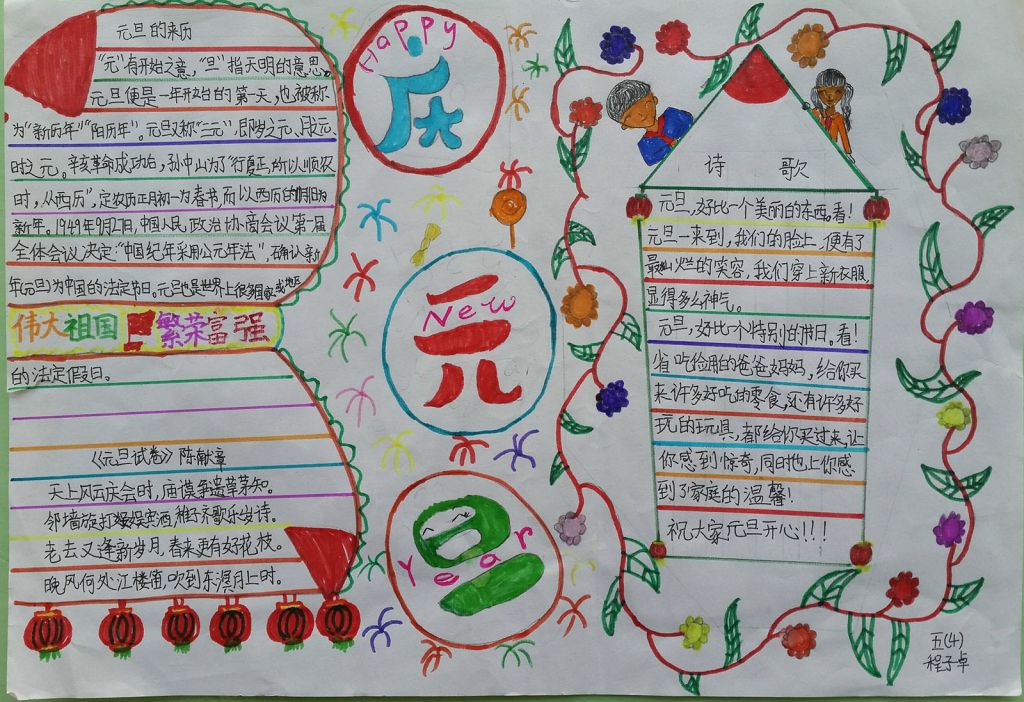 元旦的来历
"元"有开始之意，"旦"指天明的意思。
元旦便是一年开始的第一天，也被称
为"新历年""阳历年"。元旦又称"三元"，即岁之元、月之元、
时之元。辛亥革命成功后，孙中山为了"行夏正，所以顺农
时，从西历"，定农历正月初一为春节，而以西历的
新年。1949年9月27日，中国人民政治协商会议第一届
全体会议决定："中国纪年采用公元年法"，确认新
年(元旦)为中国的法定节日。元旦也是世界上很多国家或地区
伟大祖国 繁荣富强
的法定假日。
《元旦试卷》陈献章
天上风云庆会时，庙谟争遗草茅知。
邻墙旋打娱宾酒，稚子齐歌乐岁诗。
老去又逢新岁月，春来更有好花枝。
晚风何处江楼笛，吹到东溟月上时。
Happy
庆
New
元
Year
旦
诗 歌
元旦，好比一个美丽的东西，看！
元旦一来到，我们的脸上，便有了
最灿烂的笑容，我们穿上新衣服，
显得多么神气。
元旦，好比一个特别的节日。看！
省吃俭用的爸爸妈妈，给你买
来许多好吃的零食，还有许多好
玩的玩具，都给你买过来，让
你感到惊奇，同时也上你感
到了家庭的温馨！
祝大家元旦开心！！！
五(4)
程子卓